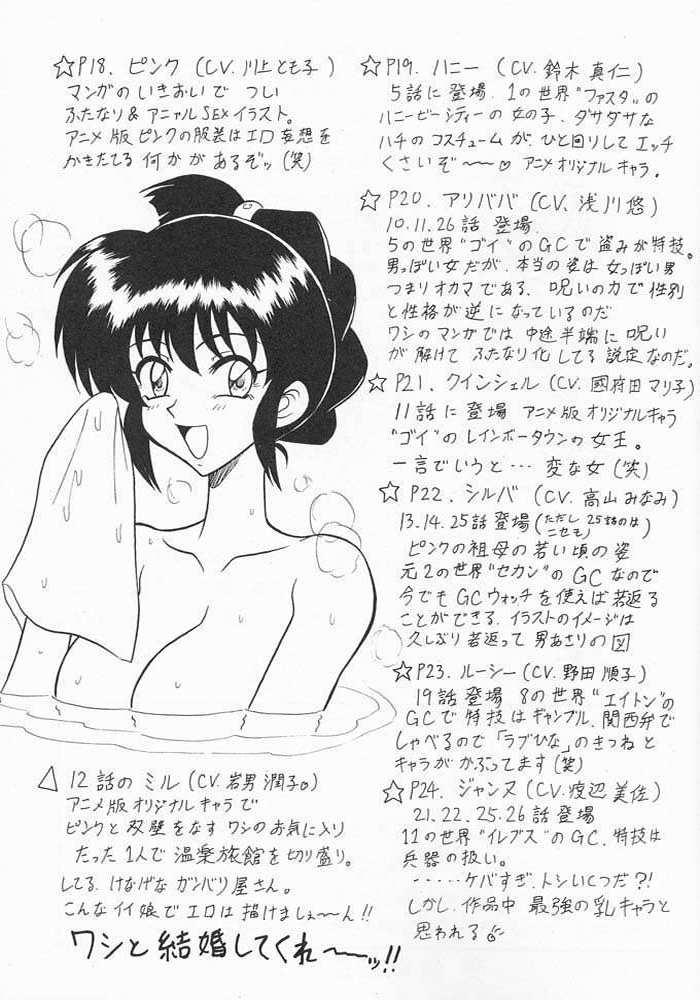 ☆P18. ピンク (CV.川上とも子)
マンガのいきおいで つい
ふたなり&アニャルSEXイラスト。
アニメ版ピンクの服装はエロ妄想を
かきたてる何かがあるぞッ(笑)
△ 12話のミル(CV.岩男潤子。)
アニメ版オリジナルキャラで
ピンクと双璧をなす ワシのお気に入り
たった1人で 温楽旅館を切り盛り。
してる、けなげな ガンバリ屋さん。
こんなイイ娘で エロは描けましぇ〜ん!!
ワシと結婚してくれ〜〜ッ!!
☆P19. ハニー (CV.鈴木真仁)
5話に登場. 1の世界"ファスタ"の
ハニービーシティーの女の子. ダサダサな
ハチのコスチュームが、ひと回りしてエッチ
くさいぞ〜〜♡ アニメオリジナルキャラ.
☆P20. アリババ(CV.浅川悠)
10.11.26話 登場.
5の世界"ゴイ"のGCで盗みが特技。
男っぽい女だが、本当の姿は女っぽい男
つまりオカマである. 呪いの力で性別
と性格が逆になっているのだ
ワシのマンガでは中途半端に呪い
が解けて ふたなり化してる設定なのだ。
☆P21. クインシェル (CV.國府田マリ子)
11話に登場 アニメ版オリジナルキャラ
"ゴイ"のレインボータウンの女王。
一言でいうと… 変な女(笑)
☆P22. シルバ (CV.高山みなみ)
13.14.25話登場(ただし25話のは
ニセモノ)
ピンクの祖母の若い頃の姿
元2の世界"セカン"のGCなので
今でもGCウォッチを使えば若返る
ことができる. イラストのイメージは
久しぶり若返って男あさりの図
☆P23. ルーシー(CV.野田順子)
19話登場 8の世界"エイトン"の
GCで特技はギャンブル. 関西弁で
しゃべるので「ラブひな」のきつねと
キャラがかぶってます(笑)
☆P24. ジャンヌ(CV.渡辺美佐)
21.22.25.26話登場
11の世界"イレブス"のGC. 特技は
兵器の扱い。
‥‥‥ケバすぎ. トシいくつだ?!
しかし、作品中 最強の乳キャラと
思われる